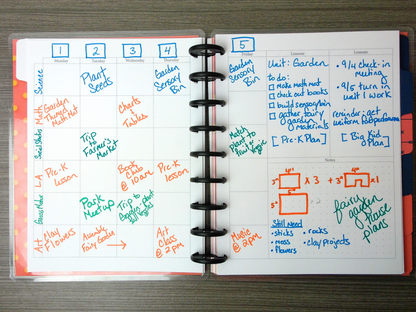 1
2
3
4
Monday
Tuesday
Wednesday
Thursday
Science
Plant
Seeds
Garden
Sensory
Bin
Math
Garden
Themed
Math Mat
Charts
&
Tables
Social Studies
Trip
to
Farmer's
Market
L.A
Pre-K
lesson
Book
Club
@ 10am
Pre-K
lesson
Park
Meetup
Trip to
Art
Clay
Flowers
Assemble
Fairy Garden
Art
Class
@ 2pm
5
Friday
Garden
Sensory
Bin
Match
plant to
Music
@ 2pm
Lessons
Unit: Garden
to do:
make math mat
check out books
build sensory bin
gather fairy
garden
materials
[Pre-K Plan]
Lessons
• 9/4 check-in
meeting
• 9/5 turn in
unit 1 work
reminder: get
uniform to
[Big Kid
Plan]
Notes
3"
4"
x 3
+ 3"
4"
x 1
5"
Still Need
• sticks
• moss
• flowers
• rocks
• clay projects
fairy
garden
house
plans